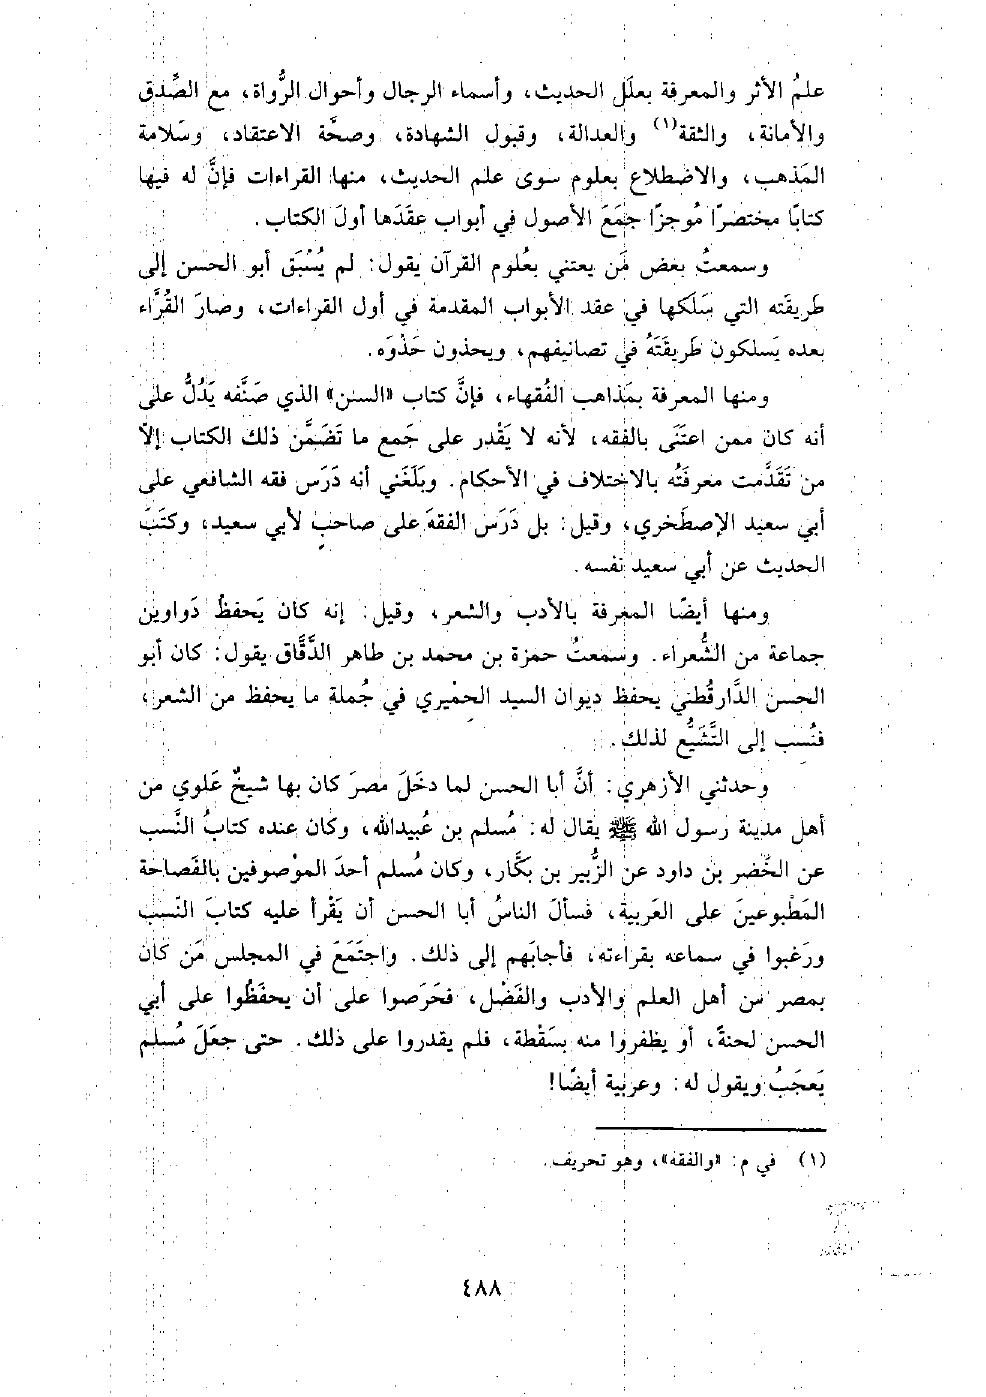 علمُ الأثر والمعرفة بعلَل الحديث، وأسماء الرجال وأحوال الرُّواة، مع الصِّدق
والأمانة، والثقة(١) والعدالة، وقبول الشهادة، وصحَّة الاعتقاد، وسَلامة
المَذهب، والاضطلاع بعلوم سوى علم الحديث، منها القراءات فإنَّ له فيها
كتابًا مختصرًا مُوجزًا جمَعَ الأصول في أبواب عقَدَها أولَ الكتاب.
وسمعتُ بعض مَن يعتني بعُلوم القرآن يقول: لم يُسْبَق أبو الحسن إلى
طَريقَته التي سَلَكها في عقد الأبواب المقدمة في أول القراءات، وصارَ القُرَّاء
بعده يَسلكون طَريقَتَهُ في تصانيفهم، ويحذون حَذْوَه.
ومنها المعرفة بمَذاهب الفُقهاء، فإنَّ كتاب «السنن» الذي صَنَّفه يَدُلُّ على
أنه كان ممن اعتَنَى بالفقه، لأنه لا يَقْدر على جَمع ما تَضَمَّن ذلك الكتاب إلاّ
من تَقَدَّمت معرفَتُه بالاختلاف في الأحكام. وبَلَغَني أنه دَرَس فقه الشافعي على
أبي سعيد الإصطَخري، وقيل: بل دَرَس الفقهَ على صاحبٍ لأبي سعيد، وكتَبَ
الحديث عن أبي سعيد نفسه.
ومنها أيضًا المعرفة بالأدب والشعر، وقيل: إنه كان يَحفظُ دَواوين
جماعة من الشُّعراء. وسَمعتُ حمزة بن محمد بن طاهر الدَّقَّاق يقول: كان أبو
الحسن الدَّارقُطني يحفظ ديوان السيد الحمْيري في جُملة ما يحفظ من الشعر،
فنُسب إلى التَّشَيُّع لذلك.
وحدثني الأزهري: أنَّ أبا الحسن لما دخَلَ مصرَ كان بها شيخٌ عَلوي من
أهل مدينة رسول الله ﷺ يقال له: مُسلم بن عُبيدالله، وكان عنده كتابُ النَّسب
عن الخَضر بن داود عن الزُّبير بن بَكَّار، وكان مُسلم أحدَ الموْصوفين بالفَصاحة
المَطْبوعينَ على العَربية، فسألَ الناسُ أبا الحسن أن يَقْرأ عليه كتابَ النَسب
ورَغبوا في سماعه بقراءته، فأجابَهم إلى ذلك. واجتَمَعَ في المجلس مَن كان
بمصر من أهل العلم والأدب والفَضْل، فحَرَصوا على أن يحفَظُوا على أبي
الحسن لحنةً، أو يظفروا منه بسَقْطة، فلم يقدروا على ذلك. حتى جعَلَ مُسلم
يَعجَبُ ويقول له: وعربية أيضًا!
(١) في م: «والفقه»، وهو تحريف.
٤٨٨